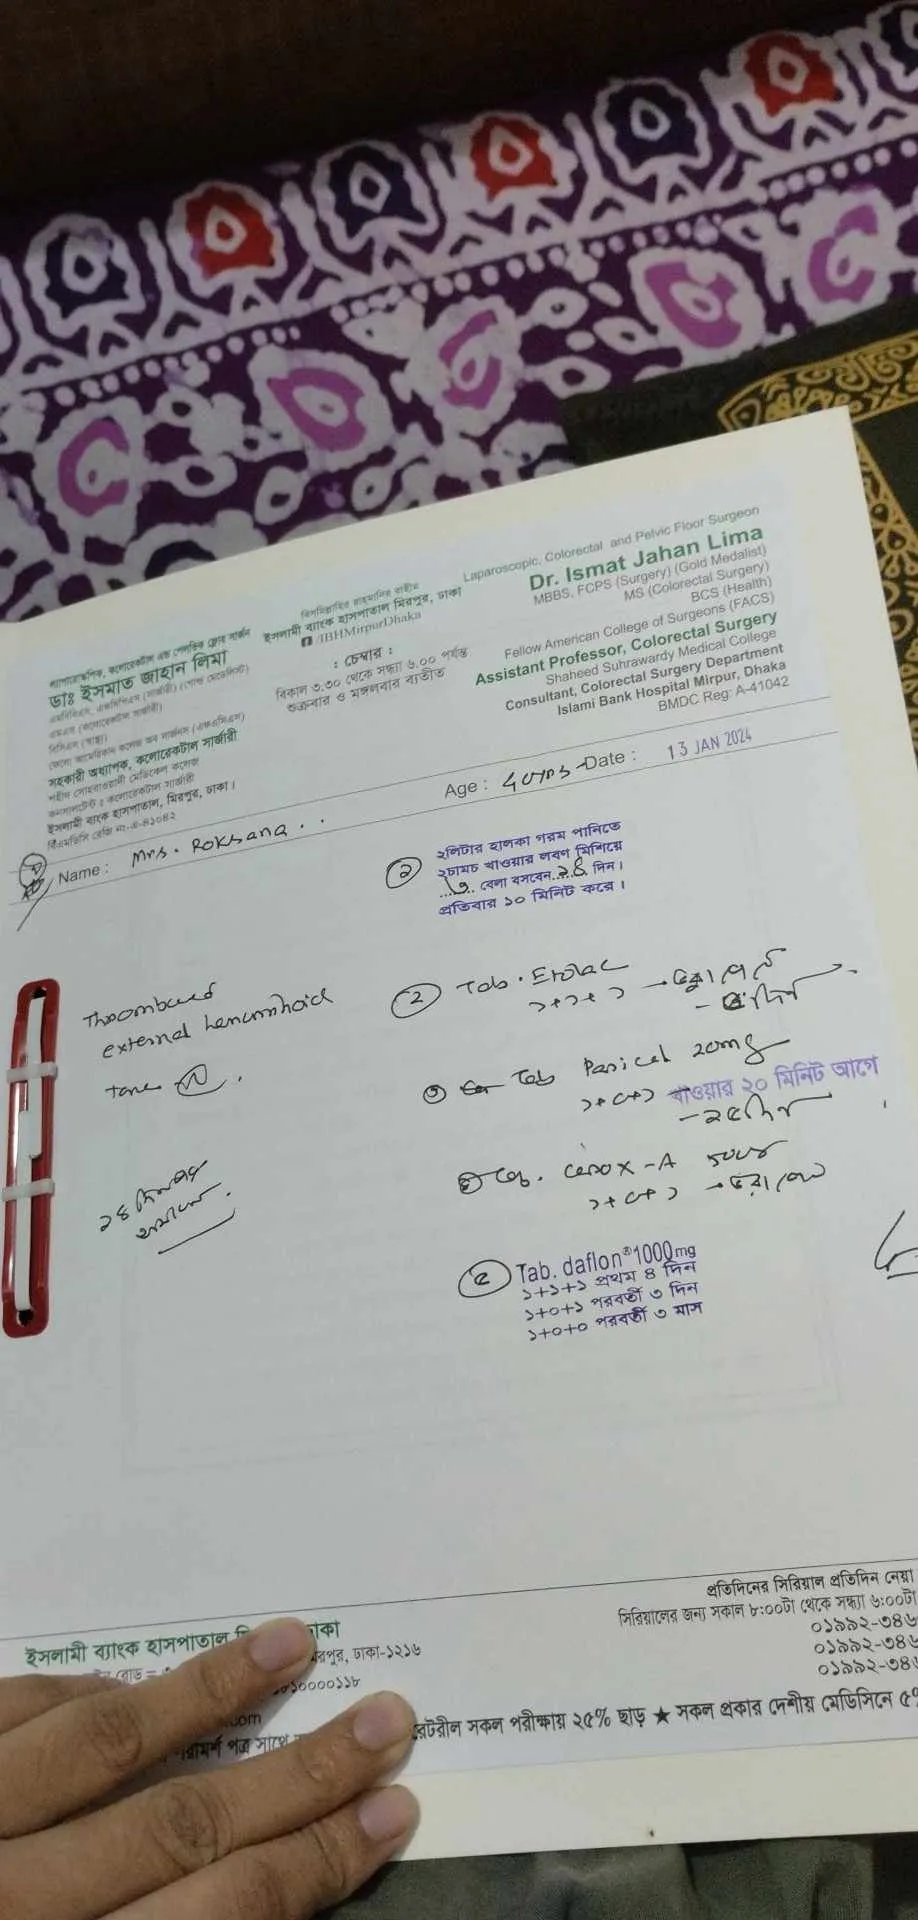 ল্যাপারোস্কপিক, কলোরেকটাল এন্ড পেলভিক ফ্লোর সার্জন
ডাঃ ইসমাত জাহান লিমা
এমবিবিএস, এফসিপিএস (সার্জারী) (গোল্ড মেডেলিস্ট)
এমএস (কলোরেকটাল সার্জারী)
বিসিএস (স্বাস্থ্য)
ফেলো আমেরিকান কলেজ অব সার্জনস (এফএসিএস)
সহকারী অধ্যাপক, কলোরেকটাল সার্জারী
শহীদ সোহরাওয়ার্দী মেডিকেল কলেজ
কনসালটেন্ট : কলোরেকটাল সার্জারী
ইসলামী ব্যাংক হাসপাতাল, মিরপুর, ঢাকা।
বিএমডিসি রেজি নং-এ-৪১০৪২
বিসমিল্লাহির রাহ্‌মানির রাহীম
ইসলামী ব্যাংক হাসপাতাল মিরপুর, ঢাকা
/IBHMirpurDhaka
: চেম্বার :
বিকাল ৩.৩০ থেকে সন্ধ্যা ৬.০০ পর্যন্ত
শুক্রবার ও মঙ্গলবার ব্যতীত
Laparoscopic, Colorectal and Pelvic Floor Surgeon
Dr. Ismat Jahan Lima
MBBS, FCPS (Surgery) (Gold Medalist)
MS (Colorectal Surgery)
BCS (Health)
Fellow American College of Surgeons (FACS)
Assistant Professor, Colorectal Surgery
Shaheed Suhrawardy Medical College
Consultant, Colorectal Surgery Department
Islami Bank Hospital Mirpur, Dhaka
BMDC Reg: A-41042
Name : Mrs. Roksana . . Age : 40yrs Date : 13 JAN 2024
Thrombosed
external hemorrhoid
tone (N).
২লিটার হালকা গরম পানিতে
২চামচ খাওয়ার লবণ মিশিয়ে
...৩.. বেলা বসবেন..২৪ দিন।
প্রতিবার ১০ মিনিট করে।
(2) Tab. Etolac
১+১+১
③ Tab Panical 20mg
১+০+১ খাওয়ার ২০ মিনিট আগে
Cap. Cenox-A 500
১+০+১
(৫) Tab. daflon® 1000mg
১+১+১ প্রথম ৪ দিন
১+০+১ পরবর্তী ৩ দিন
১+০+০ পরবর্তী ৩ মাস
প্রতিদিনের সিরিয়াল প্রতিদিন নেয়া
সিরিয়ালের জন্য সকাল ৮:০০টা থেকে সন্ধ্যা ৬:০০টা
০১৯৯২-৩৪৬
০১৯৯২-৩৪৬
০১৯৯২-৩৪৬
ইসলামী ব্যাংক হাসপাতাল
মিরপুর, ঢাকা-১২১৬
.com
সকল পরীক্ষায় ২৫% ছাড় ★ সকল প্রকার দেশীয় মেডিসিনে ৫%